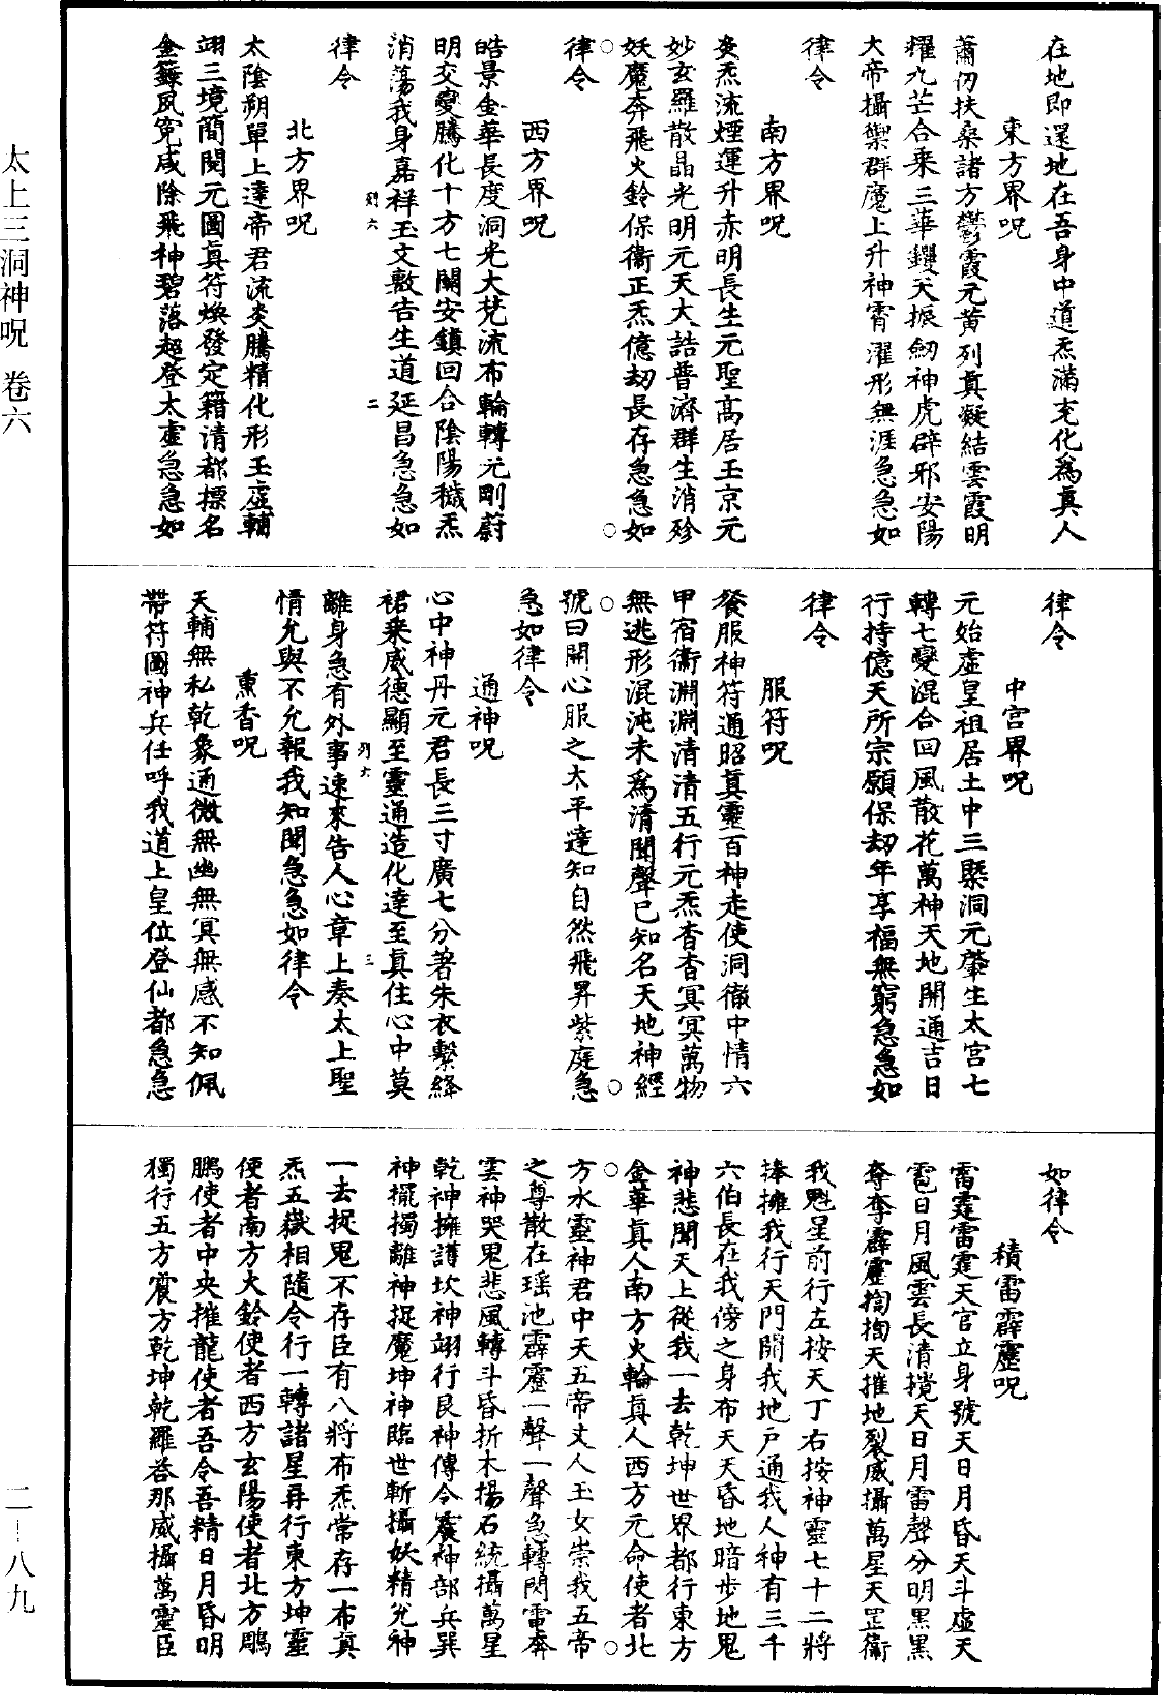 在地即還地在吾身中道炁滿充化爲眞人
東方界呪
蕭仞扶桑諸方鬱霞元黃列眞凝結雲霞明
耀九芒合乘三華鑊天振劒神虎辟邪安陽
大帝攝禦群魔上升神霄濯形無涯急急如
律令
南方界呪
炎炁流煙運升赤明長生元聖高居玉京元
妙玄羅散晶光明元天大誥普濟群生消殄
妖魔奔飛火鈴保衞正炁億劫長存急急如
律令
西方界呪
皓景金華長度洞光大梵流布輪轉元剛蔚
明交變騰化十方七關安鎮回合陰陽穢炁
消蕩我身嘉祥玉文敷告生道延昌急急如
律令
北方界呪
太陰朔單上達帝君流炎騰精化形玉虛輔
翊三境簡閱元圖眞符煥發定籍清都標名
金籙夙寃咸除飛神碧落超登太虛急急如
律令
中宮界呪
元始虛皇祖居土中三炁洞元肇生太宮七
轉七變混合回風散花萬神天地開通吉日
行持億天所宗願保劫年享福無窮急急如
律令
服符呪
餐服神符通昭眞靈百神走使洞徹中情六
甲宿衞淵淵清清五行元炁杳杳冥冥萬物
無逃形混沌未爲清聞聲已知名天地神經
號曰開心服之太平達知自然飛昇紫庭急
急如律令
通神呪
心中神丹元君長三寸廣七分著朱衣繫絳
裙乘威德顯至靈通造化達至眞住心中莫
離身急有外事速來告人心章上奏太上聖
情允與不允報我知聞急急如律令
熏香呪
天輔無私乾象通微無幽無冥無感不知佩
帶符圖神兵任呼我道上皇位登仙都急急
如律令
積雷霹靂呪
雷霆雷霆天官立身號天日月昏天斗虛天
雹日月風雲長清攪天日月雷聲分明黑黑
奪奪霹靂掏掏天摧地裂威攝萬星天罡衞
我魁星前行左按天丁右按神靈七十二將
捧擁我行天門開我地戶通我人神有三千
六伯長在我傍之身布天天昏地暗步地鬼
神悲聞天上從我一去乾坤世界都行東方
金華眞人南方火輪眞人西方元命使者北
方水靈神君中天五帝丈人玉女崇我五帝
之尊散在瑶池霹靂一聲一聲急轉閃電奔
雲神哭鬼悲風轉斗昏折木揚石統攝萬星
乾神擁護坎神翊行艮神傳令震神部兵巽
神擺獨離神捉魔坤神臨世斬攝妖精兊神
一去捉鬼不存臣有八將布炁常存一布眞
炁五嶽相隨令行一轉諸星再行東方坤靈
使者南方火鈴使者西方玄陽使者北方鵰
鵬使者中央摧龍使者吾令吾精日月昏明
獨行五方震方乾坤乾羅荅那威攝萬靈臣
太上三洞神呪 卷六
二—八九